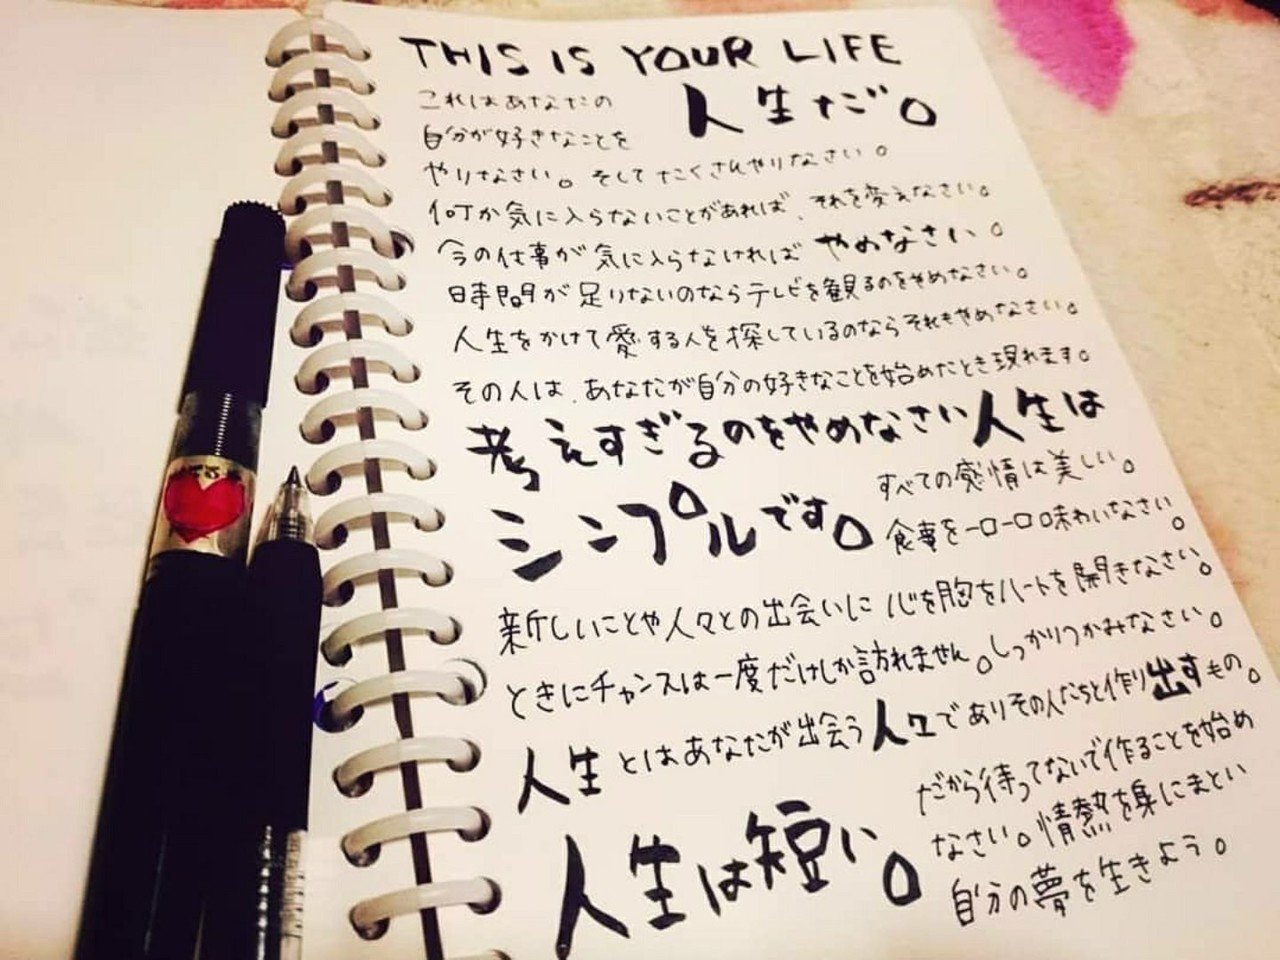 THIS IS YOUR LIFE
これはあなたの
人生だ。
自分が好きなことを
やりなさい。そしてたくさんやりなさい。
何か気に入らないことがあれば、それを変えなさい。
今の仕事が気に入らなければやめなさい。
時間が足りないのならテレビを観るのをやめなさい。
人生をかけて愛する人を探しているのならそれもやめなさい。
その人は、あなたが自分の好きなことを始めたとき現れます。
考えすぎるのをやめなさい人生は
シンプルです。
すべての感情は美しい。
食事を一口一口味わいなさい。
新しいことや人々との出会いに心を胸をハートを開きなさい。
ときにチャンスは一度だけしか訪れません。しっかりつかみなさい。
人生とはあなたが出会う人々でありその人たちと作り出すもの。
だから待ってないで作ることを始め
なさい。情熱を身にまとい
人生は短い。
自分の夢を生きよう。